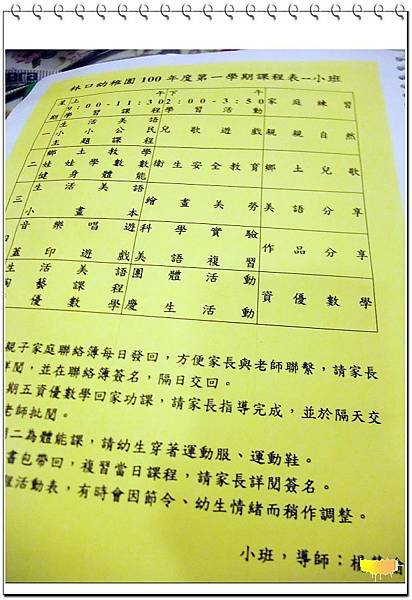 林口幼稚園100年度第一學期課程表--小班
星 上 午 下 午 家庭練習
期 9:00-11:30 2:00-3:50
學習課程 學習活動
一 生活美語 兒歌遊戲 親親自然
小小公民
主題課程
二 鄉土教學 衛生安全教育 鄉土兒歌
娃娃學數數
健身體能
三 生活美語 繪畫美勞 美語分享
小畫本
音樂唱遊 科學實驗 作品分享
蓋印遊戲 美語複習
生活美語 團體活動 資優數學
陶藝課程
資優數學 慶生活動
親子家庭聯絡簿每日發回，方便家長與老師聯繫，請家長
詳閱，並在聯絡簿簽名，隔日交回。
期五資優數學回家功課，請家長指導完成，並於隔天交
老師批閱。
二為體能課，請幼生穿著運動服、運動鞋。
書包帶回，複習當日課程，請家長詳閱簽名。
活動表，有時會因節令、幼生情緒而稍作調整。
小班，導師：楊